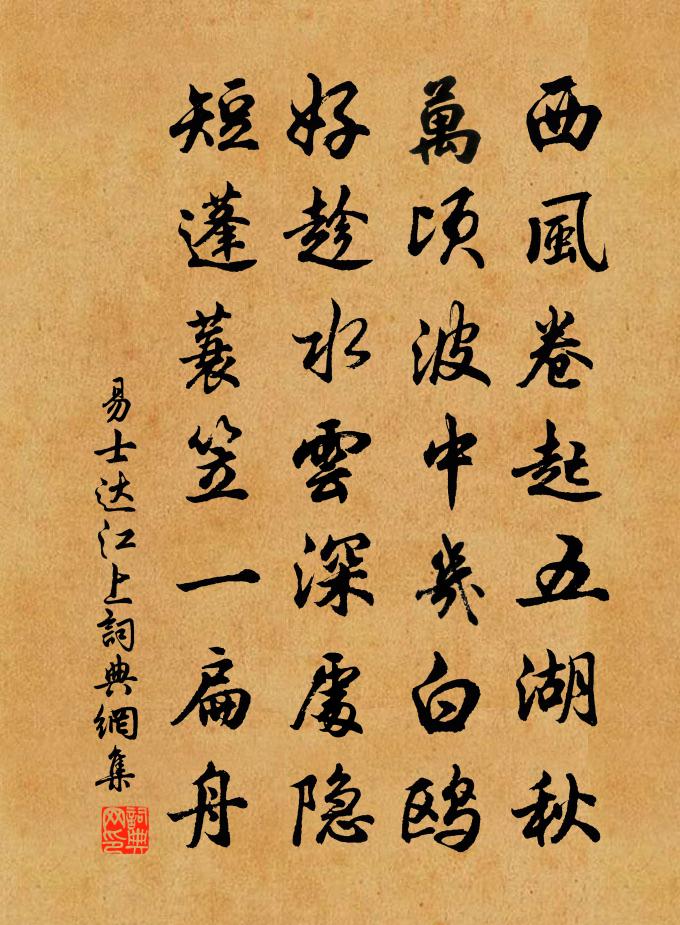 西風卷起五湖秋
萬頃波中幾白鸥
好趁水雲深處隐
短蓬蓑笠一扁舟
易士达江上詞典網集
詞典网印